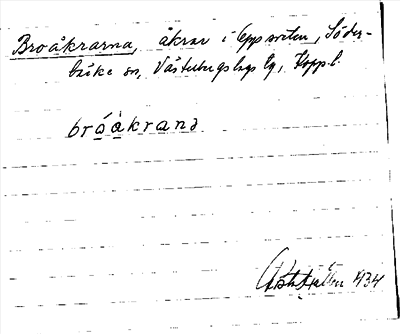 Broåkrarna, åkrar i Eppsveten, Söder-
bärke sn, Västerbergslags lg, Kopp.l.
bròåkrand
1934